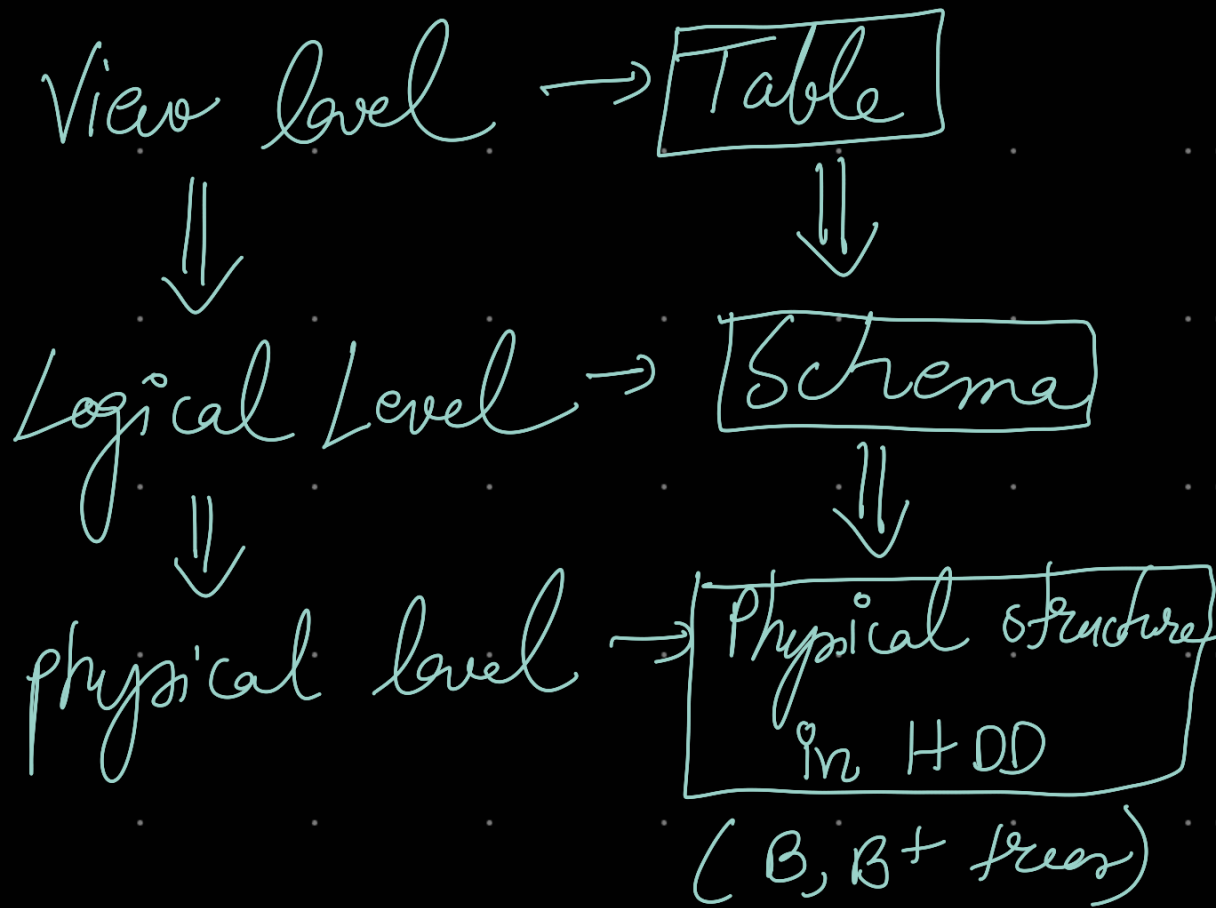 View level → Table
Logical Level → Schema
physical level → Physical structure
in HDD
(B, B+ trees)